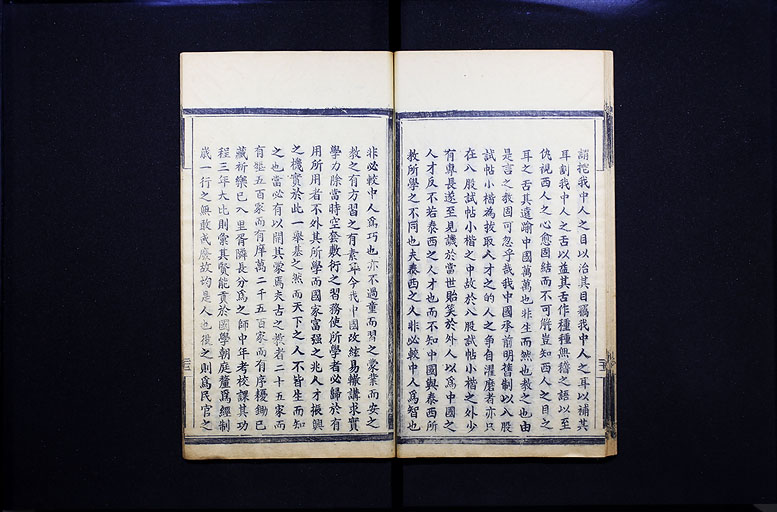 謂挖我中人之目以治其目竊我中人之耳以補其
耳割我中人之舌以益其舌作種種無稽之語以至
仇視西人之心愈固結而不可解豈知西人之目之
耳之舌其遠瑜中國萬萬也非生而然也教之也由
是言之教固可忽乎哉我中國承前明舊制以八股
試帖小楷為拔取人才之的人之爭自濯磨者亦只
在八股試帖小楷之中故於八股試帖小楷之外少
有專長遂至見譏於當世貽笑於外人以為中國之
人才反不若泰西之人才也而不知中國與泰西所
教所學之不同也夫泰西之人非必較中人爲智也
非必較中人爲巧也亦不過童而習之蒙業而安之
教之有方習之有素耳今我中國改絃易轍講求實
學力除當時空套敷衍之習務使所學者必歸於有
用所用者不外其所學而國家富强之兆人才振興
之機實於此一舉基之然而天下之人不皆生而知
之也當必有以開其蒙焉夫古之教者二十五家而
有塾五百家而有庠萬二千五百家而有序耰鋤已
藏祈樂已入里胥隣長分爲之師中年考校課其功
程三年大比則彙其賢能貢於國學朝庭釐爲經制
歲一行之無敢或廢故均是人也後之則爲民官之